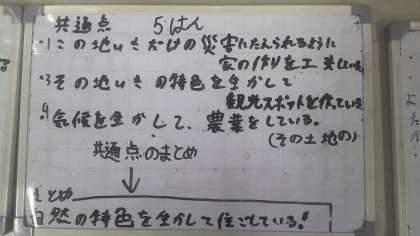 共通点 5はん
・1この地いきだけの災害にたえられるように
家の作りを工夫している。
・3その地いきの特色を生かして
観光スポットを作っている。
・4気候を生かして、農業をしている。
(その土地の)
共通点のまとめ
↓
まとめ
自然の特色を生かして住ごしている!